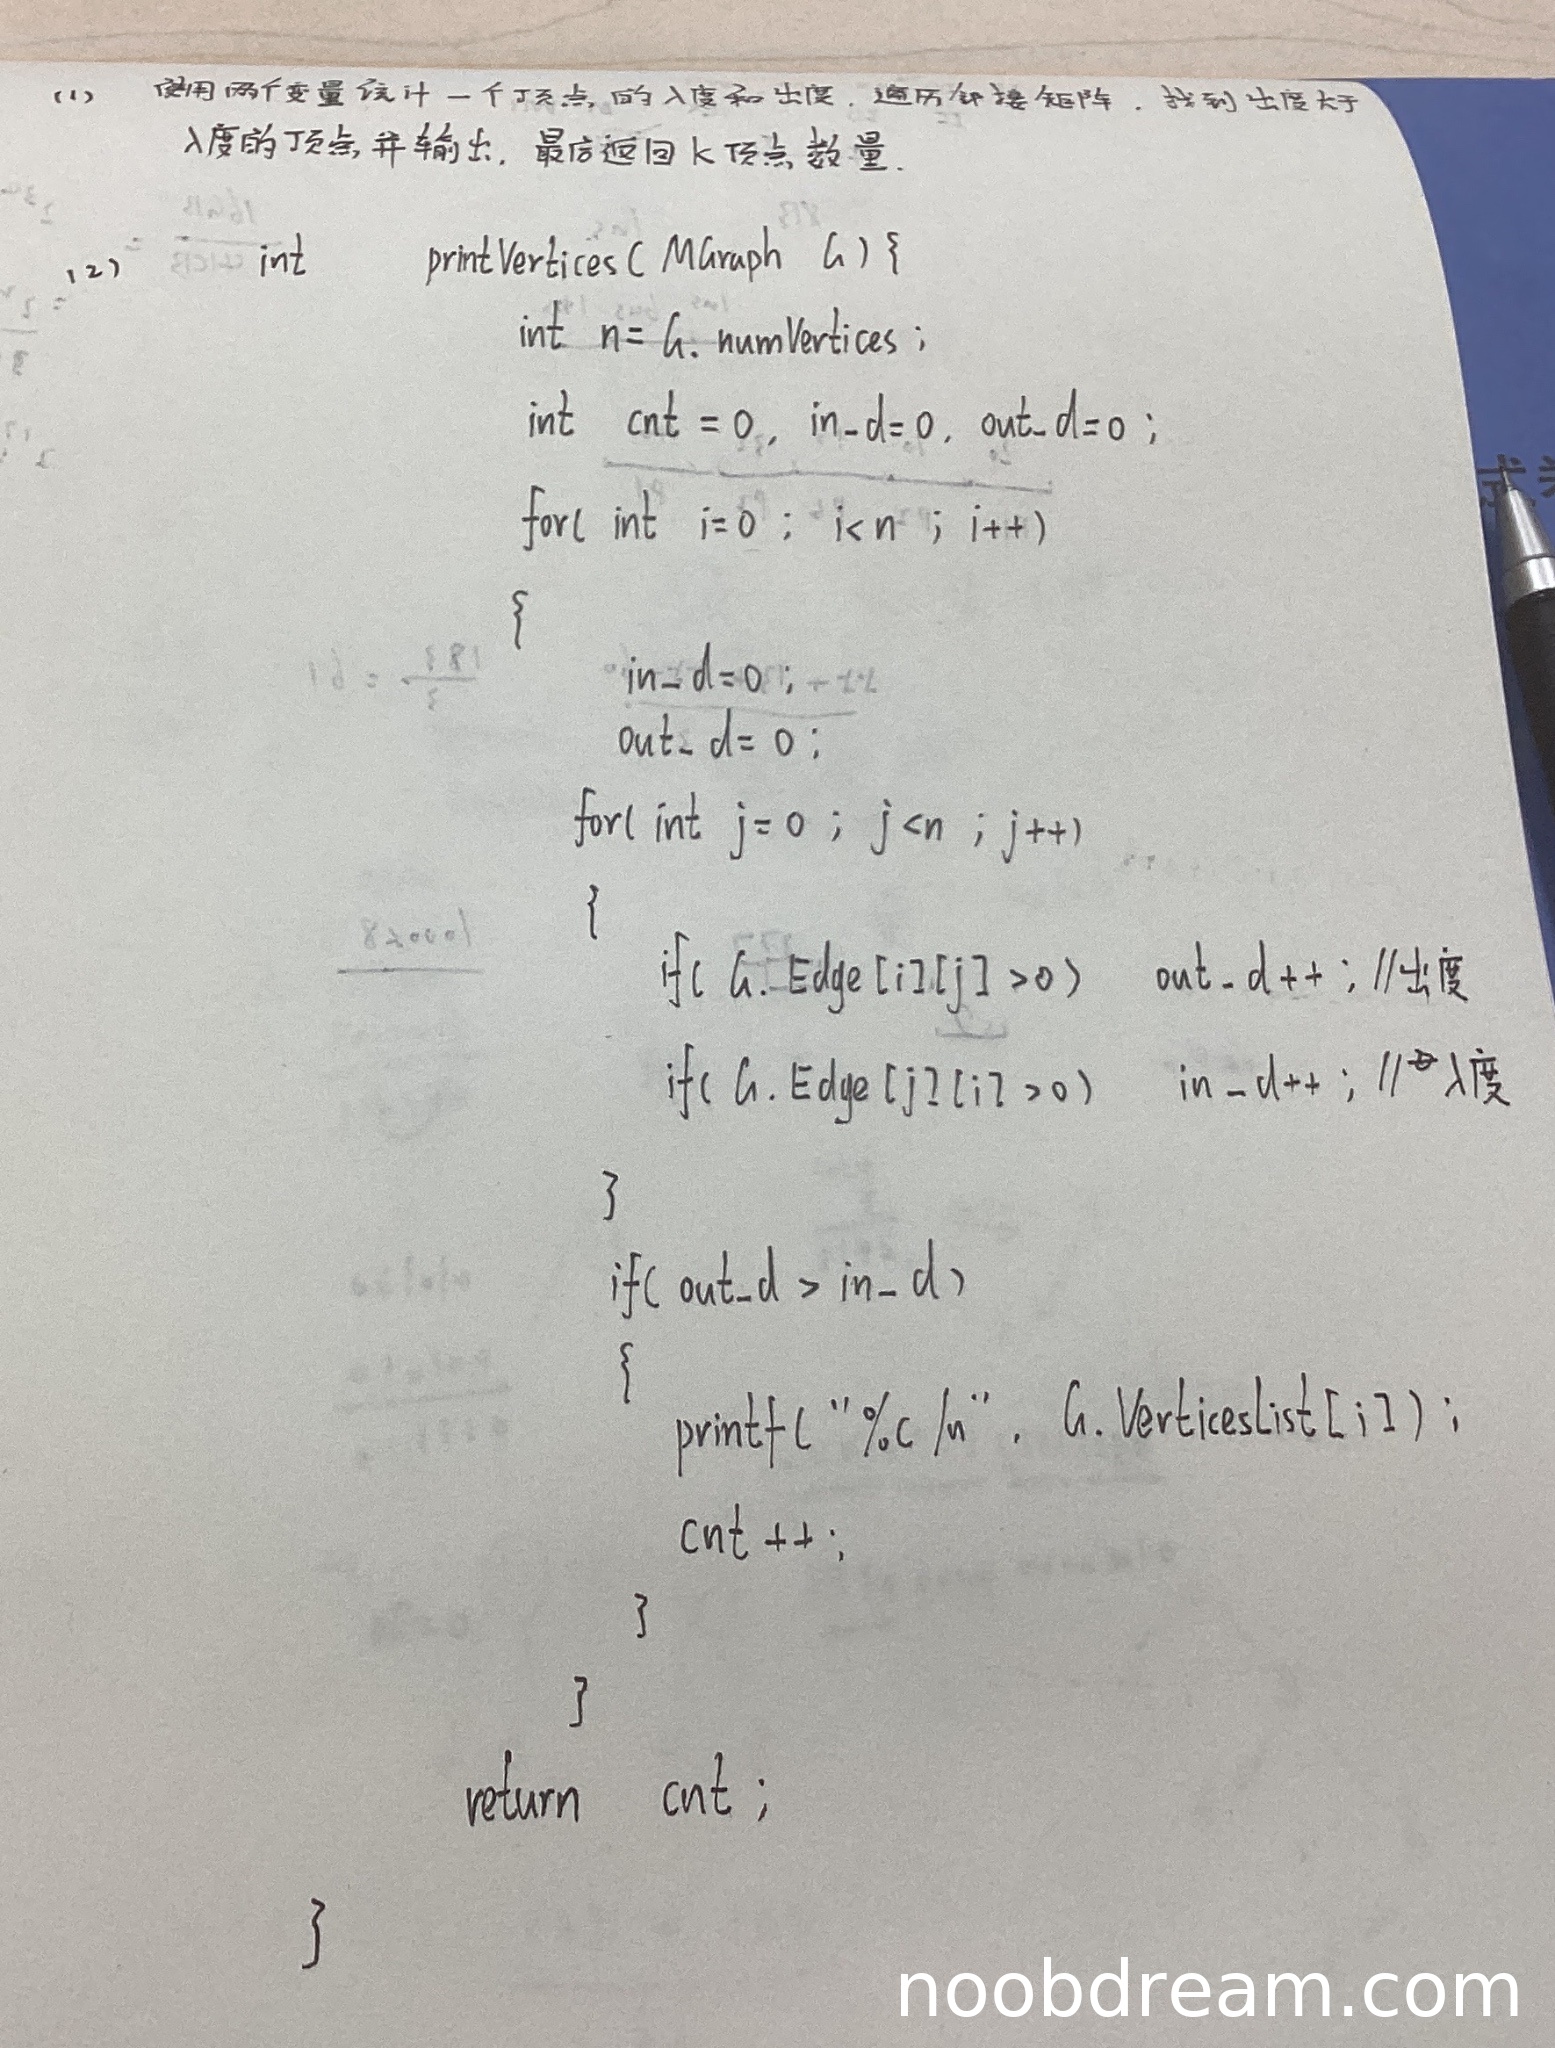 (1) 使用两个变量统计一个顶点的入度和出度，遍历邻接矩阵，找到出度大于
入度的顶点并输出，最后返回K顶点数量.
(2) int printVertices( MGraph G) {
int n= G. numVertices ;
int cnt = 0, in_d=0, out_d=0 ;
for( int i=0 ; i<n ; i++)
{
in_d=0 ;
out_d= 0 ;
for( int j=0 ; j<n ; j++)
{
if( G. Edge[i][j] >0) out_d++ ; //出度
if( G. Edge[j][i] >0) in_d++ ; //入度
}
if( out_d > in_d)
{
printf( "%c /n", G. VerticesList[i]) ;
cnt ++ ;
}
}
return cnt ;
}
noobdream.com